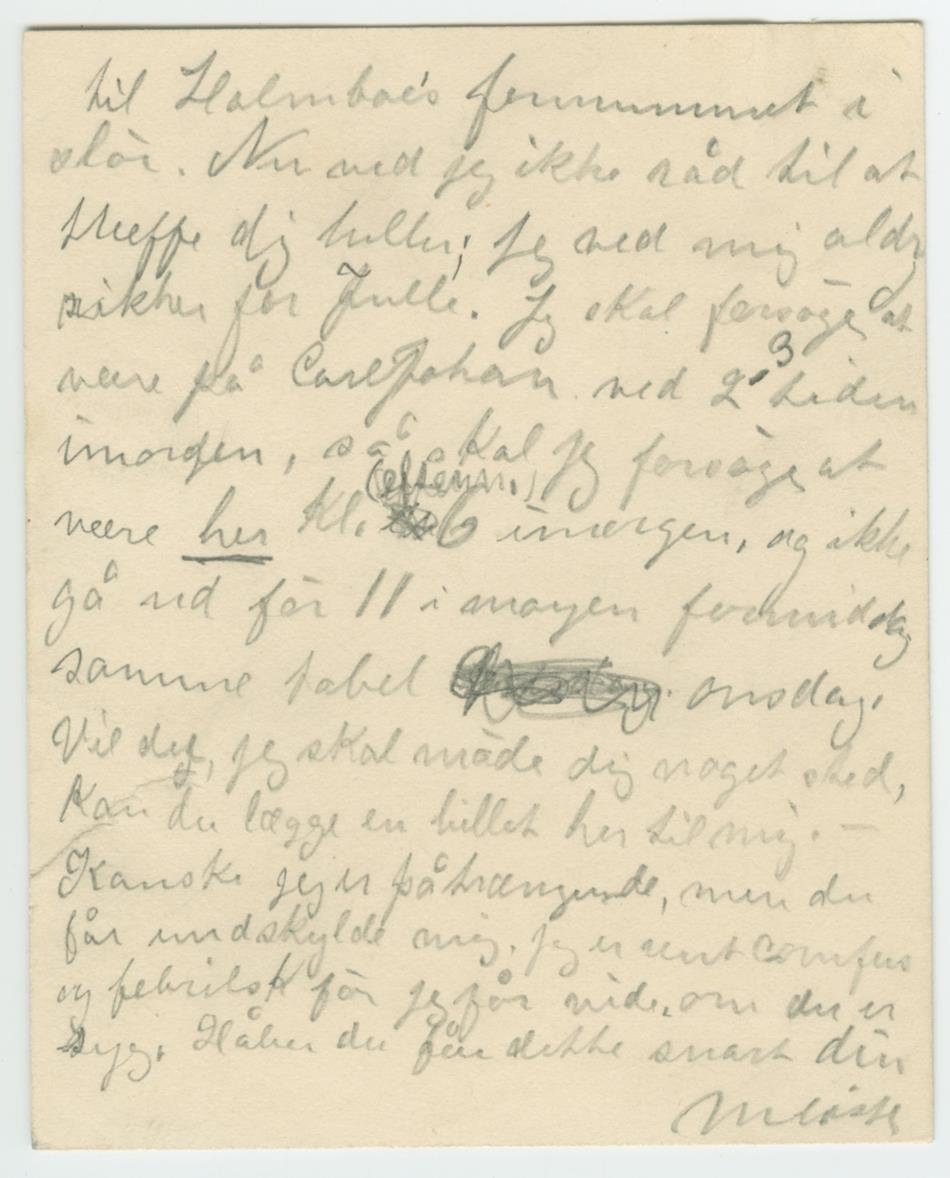 til Holmboe's formummet i
slör. Nu ved jeg ikke råd til at
træffe dig heller; jeg ved mig aldrig
sikker for Julle. Jeg skal forsöge at
være på Carl Johan ved 2, 3 tiden
imorgen, så skal jeg forsöge at
være her Kl. (efterm.) 6 imorgen, og ikke
gå ud för 11 i morgen formiddag
samme tabel onsdag.
Vil du, jeg skal möde dig noget sted,
kan du lægge en billet her til mig. —
Kanske jeg er påtrængende, men du
får undskylde mig. jeg er rent comfus
og febrilsk för jeg får vide, om du er
syg. Håber du får dette snart din